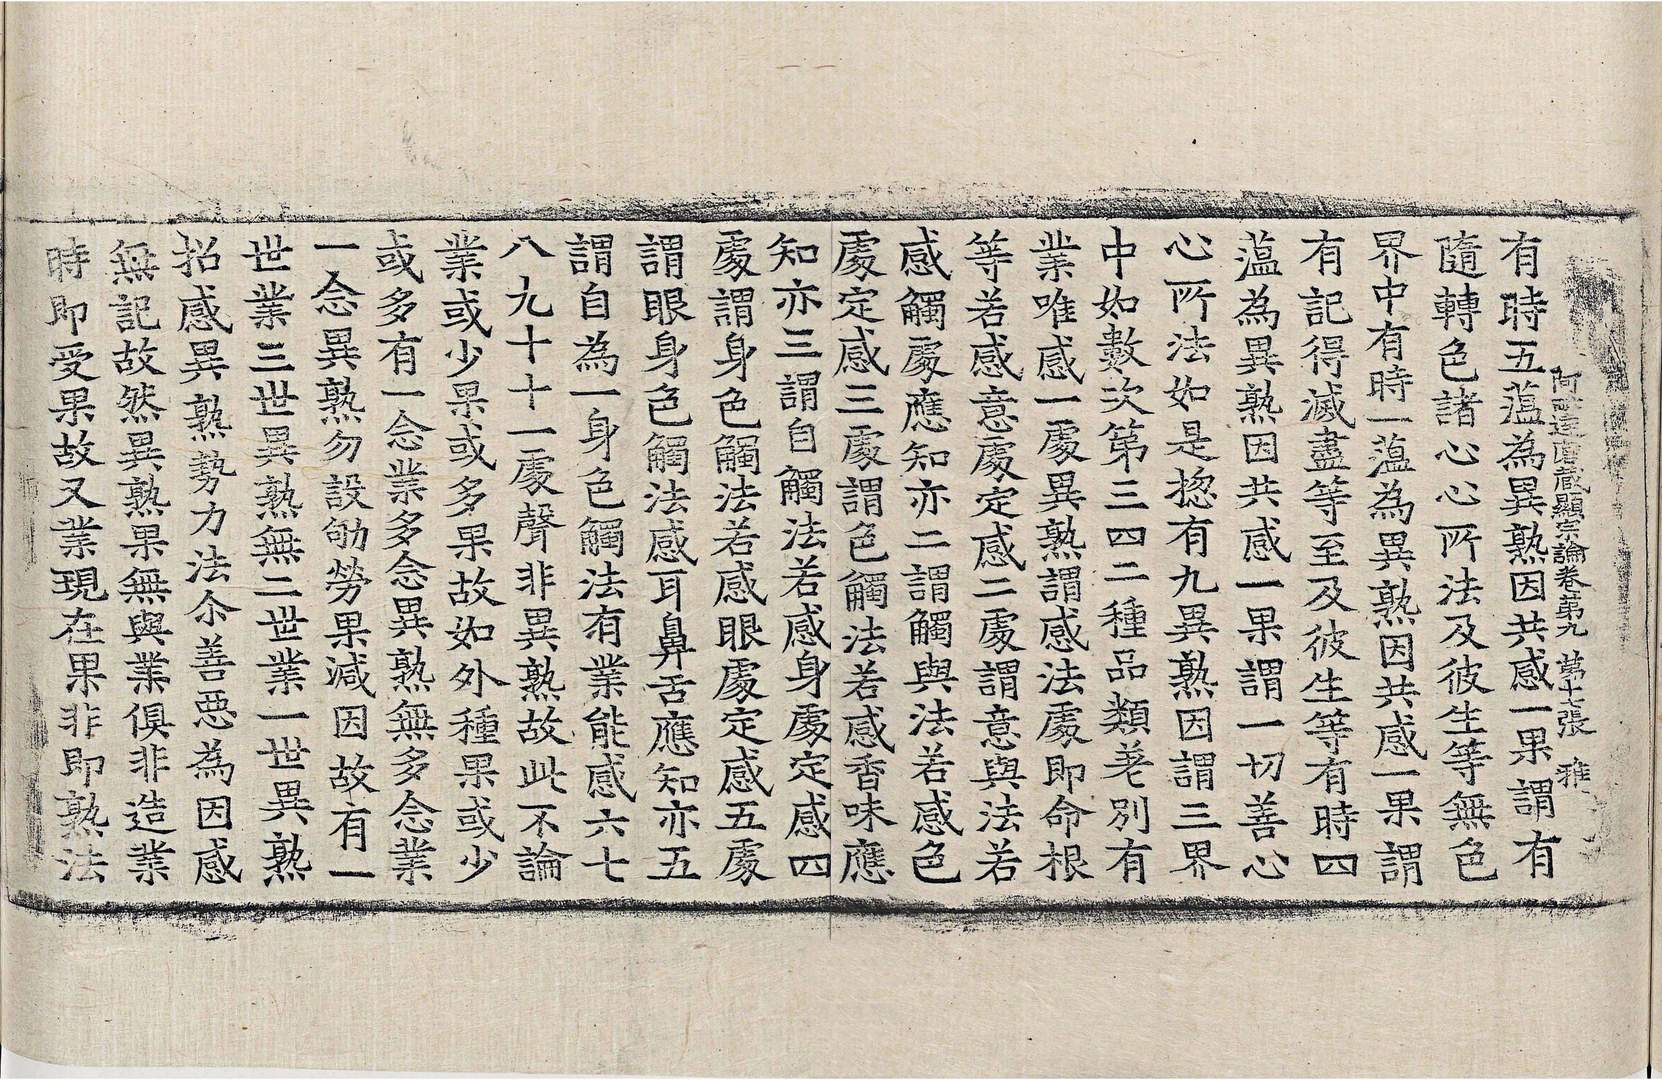 阿毗達磨藏顯宗論卷第九 第十七張 雅
有時五蘊為異熟因共感一果謂有
隨轉色諸心心所法及彼生等無色
界中有時一蘊為異熟因共感一果謂
有記得滅盡等至及彼生等有時四
蘊為異熟因共感一果謂一切善心
心所法如是揔有九異熟因謂三界
中如數次第三四二種品類差別有
業唯感一處異熟謂感法處即命根
等若感意處定感二處謂意與法若
感觸處應知亦二謂觸與法若感色
處定感三處謂色觸法若感香味應
知亦三謂自觸法若感身處定感四
處謂身色觸法若感眼處定感五處
謂眼身色觸法感耳鼻舌應知亦五
謂自為一身色觸法有業能感六七
八九十十一處聲非異熟故此不論
業或少果或多果故如外種果或少
或多有一念業多念異熟無多念業
一念異熟勿設劬勞果減因故有一
世業三世異熟無二世業一世異熟
招感異熟勢力法尒善惡為因感
無記故然異熟果無與業俱非造業
時即受果故又業現在果非即熟法